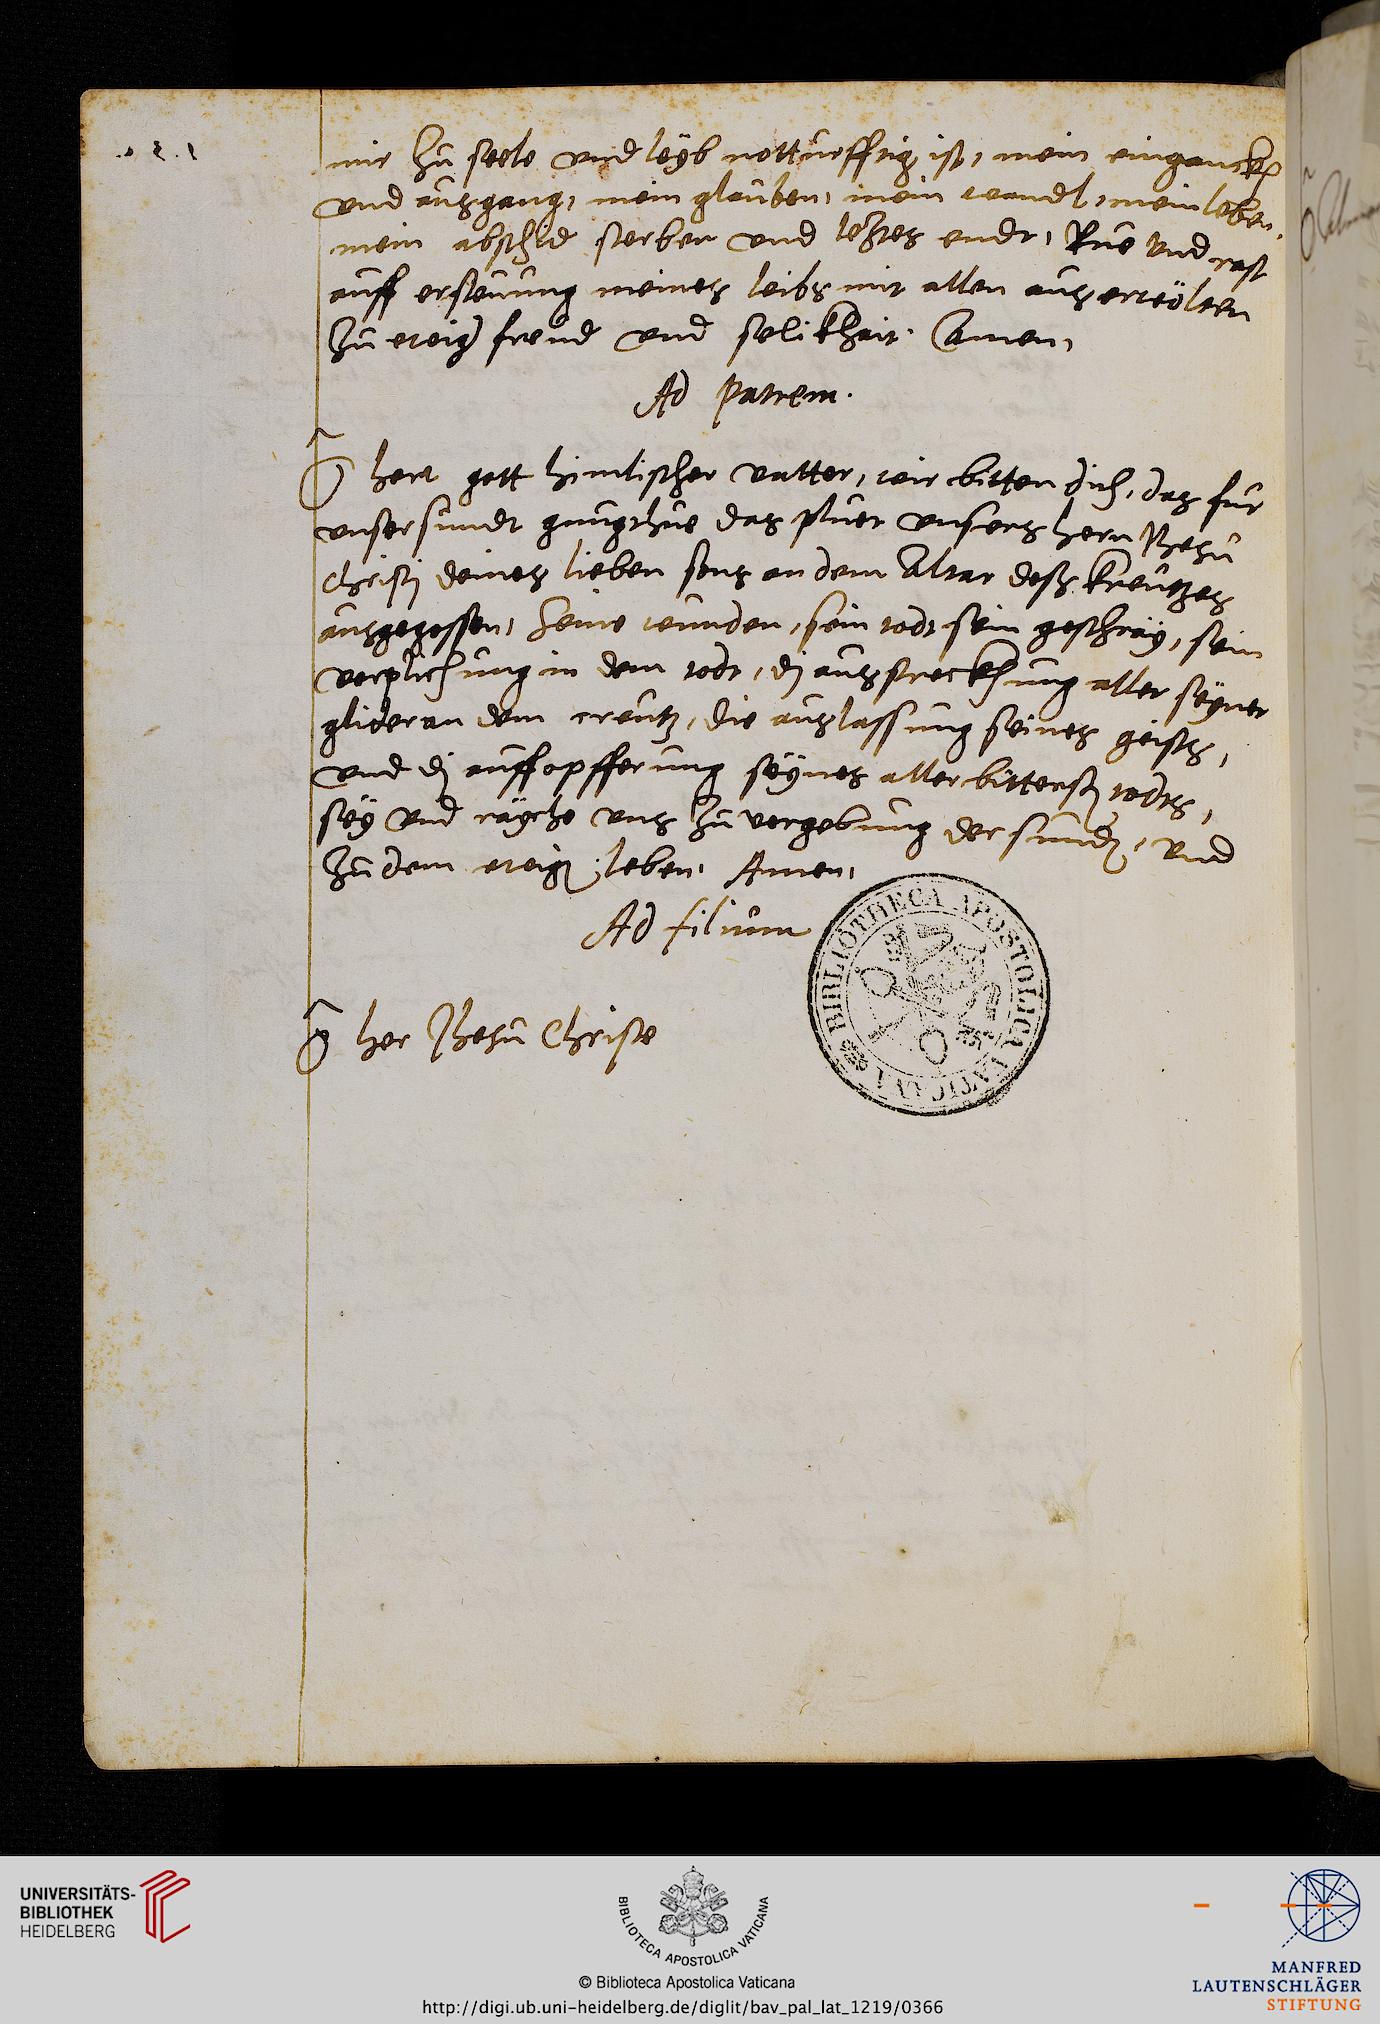 mir zu seele vnd leÿb notturfftig ist, mein eingangkh
vnd auszgang, mein glauben, mein wandl, mein leben,
mein abschid sterben vnd letztes endt, Rue vnd rast
auff ersteuung meines leibs mit allen auszerwölten
zu ewig freud vnd selikhait. Amen,
Ad Patrem.
O herr gott himlischer vatter, wir bitten dich, das fur
vnser sundt gnugthue das pluet vnsers hern Jhesu
Christi deines lieben sons an dem Altar desz kreutzes
auszgegossen, Seine wunden, sein todt sein geschräÿ, sein
verplichung in dem todt, di auszstreckhung aller seÿner
glider an dem creutz, die auszlassung seines geists,
vnd di auffopfferung seÿnes aller bitterst todts,
seÿ vnd räÿche vns zu vergebung der sund, vnd
zu dem ewig leben. Amen,
Ad filium
O her Jhesu Christe
BIBLIOTHECA APOSTOLICA VATICANA
UNIVERSITÄTS-
BIBLIOTHEK
HEIDELBERG
BIBLIOTECA APOSTOLICA VATICANA
© Biblioteca Apostolica Vaticana
http://digi.ub.uni-heidelberg.de/diglit/bav_pal_lat_1219/0366
MANFRED
LAUTENSCHLÄGER
STIFTUNG